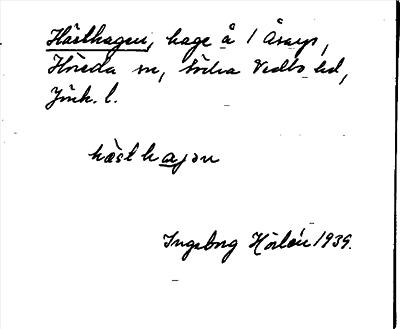 Hästhagen, hage å 1 Åsarp,
Höreda sn, Södra Vedbo hd,
Jönk. l.
hàsthajən
Ingeborg Hörlén 1939.